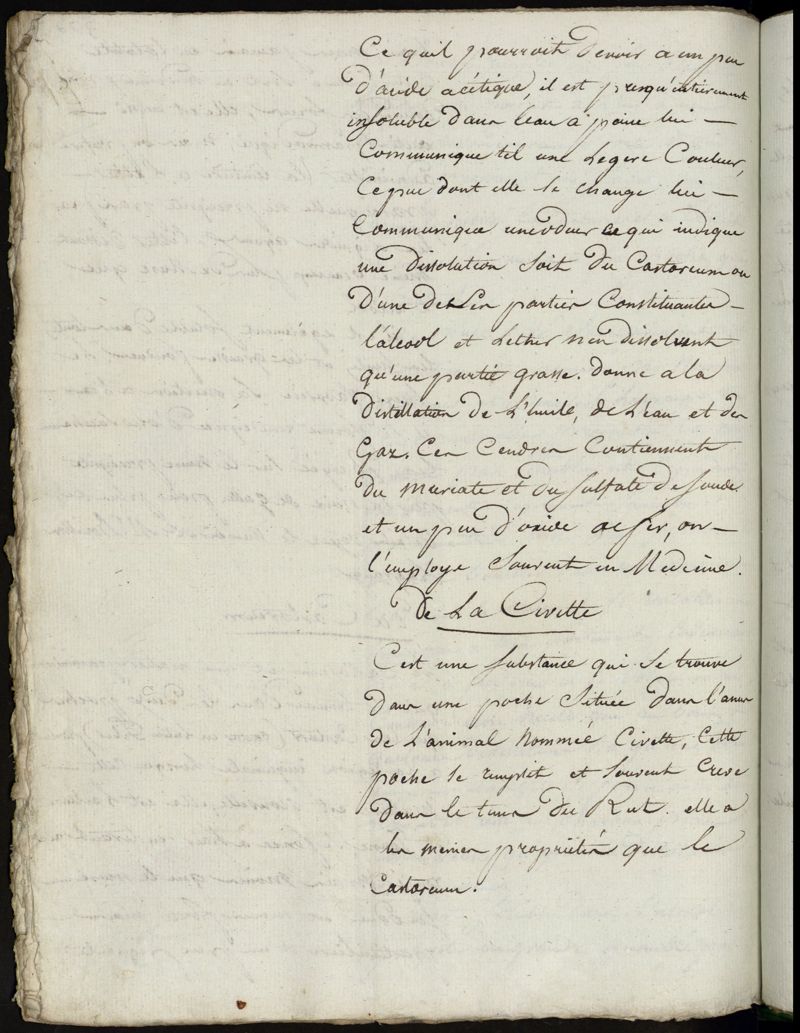 Ce quil pourroit devoir a un peu
d'acide acétique, il est presqu'entierement
insoluble dans leau a peine lui —
Communique til une Legere Couleur,
Ce que dont elle se change lui —
Communique une odeur ce qui indique
une dissolution soit du Castoreum ou
D'une de ses parties Constituantes —
l'alcool et Lether n'en dissolvent
qu'une partie grasse. Donne a la
Distillation de L'huile, de L'eau et du
Gaz. Ces Cendres Contiennent
du muriate et du sulfate de soude
et un peu d'oxide de fer, on —
l'employe souvent en Medecine.
De La Civette
C'est une substance qui se trouve
dans une poche située dans l'anus
de L'animal nommée Civette, Cette
poche se remplit et souvent Creve
dans le tems du Rut. elle a
les memes propriétés que le
Castoreum.